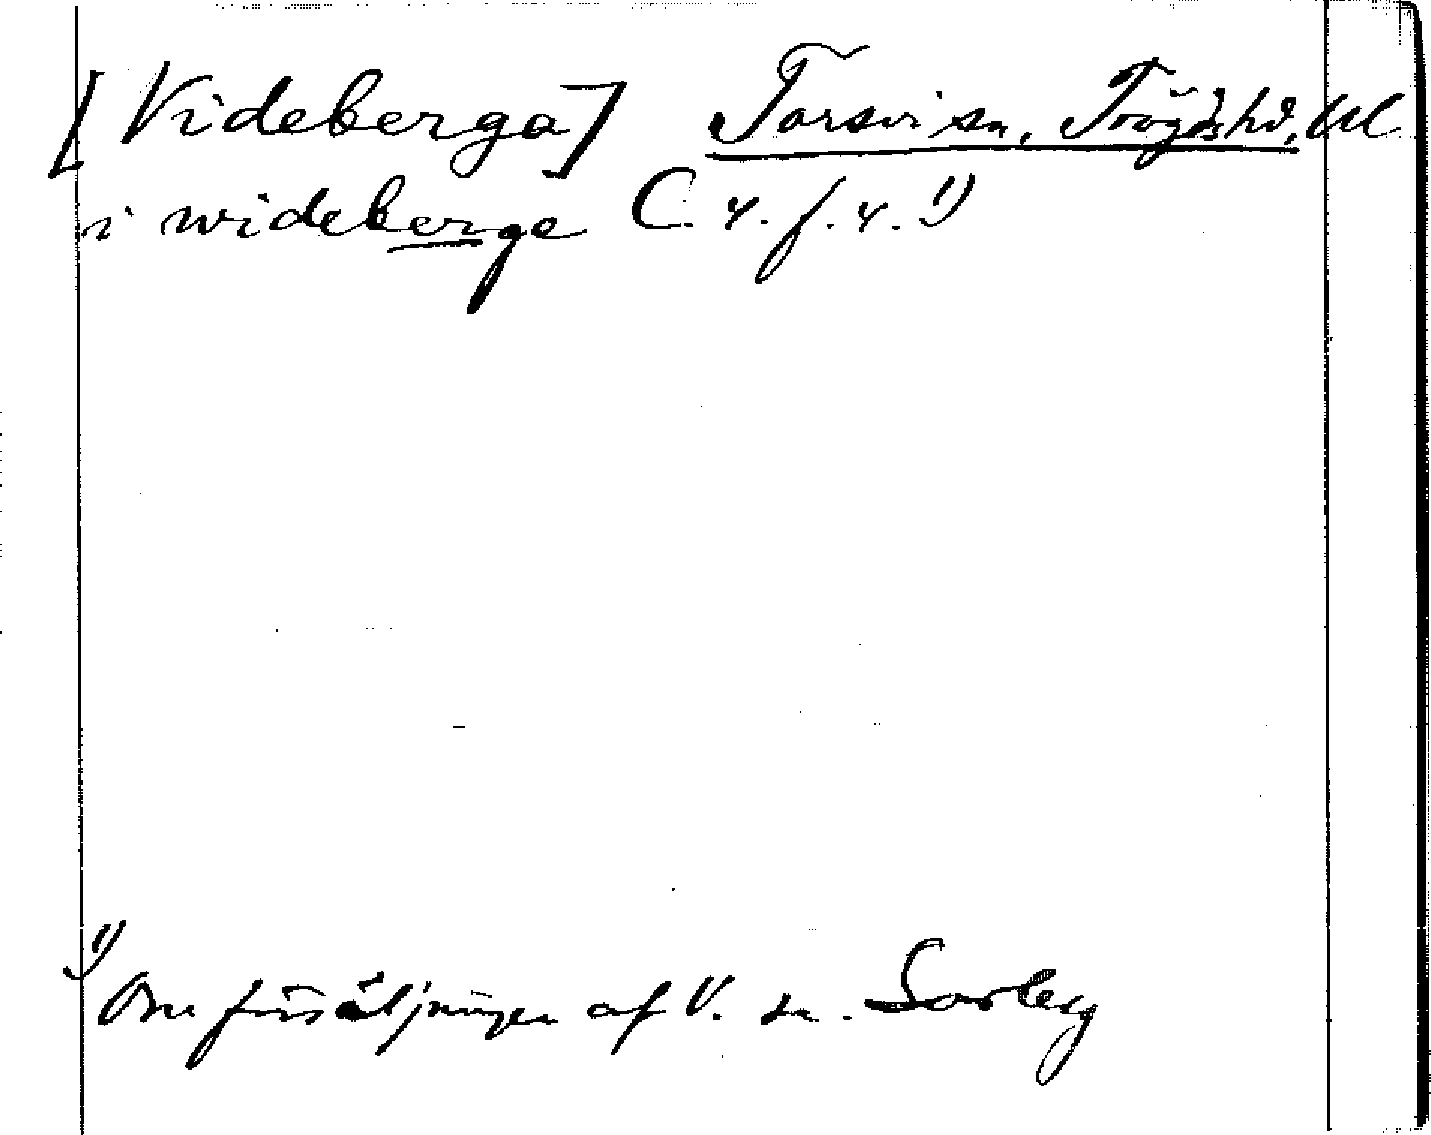 [Videberga] Torsvi sn, Trögds hd, Upl
i wideberge C. 4. f. 4. 1)
1) Om försäljningen af V. se. Sorberg